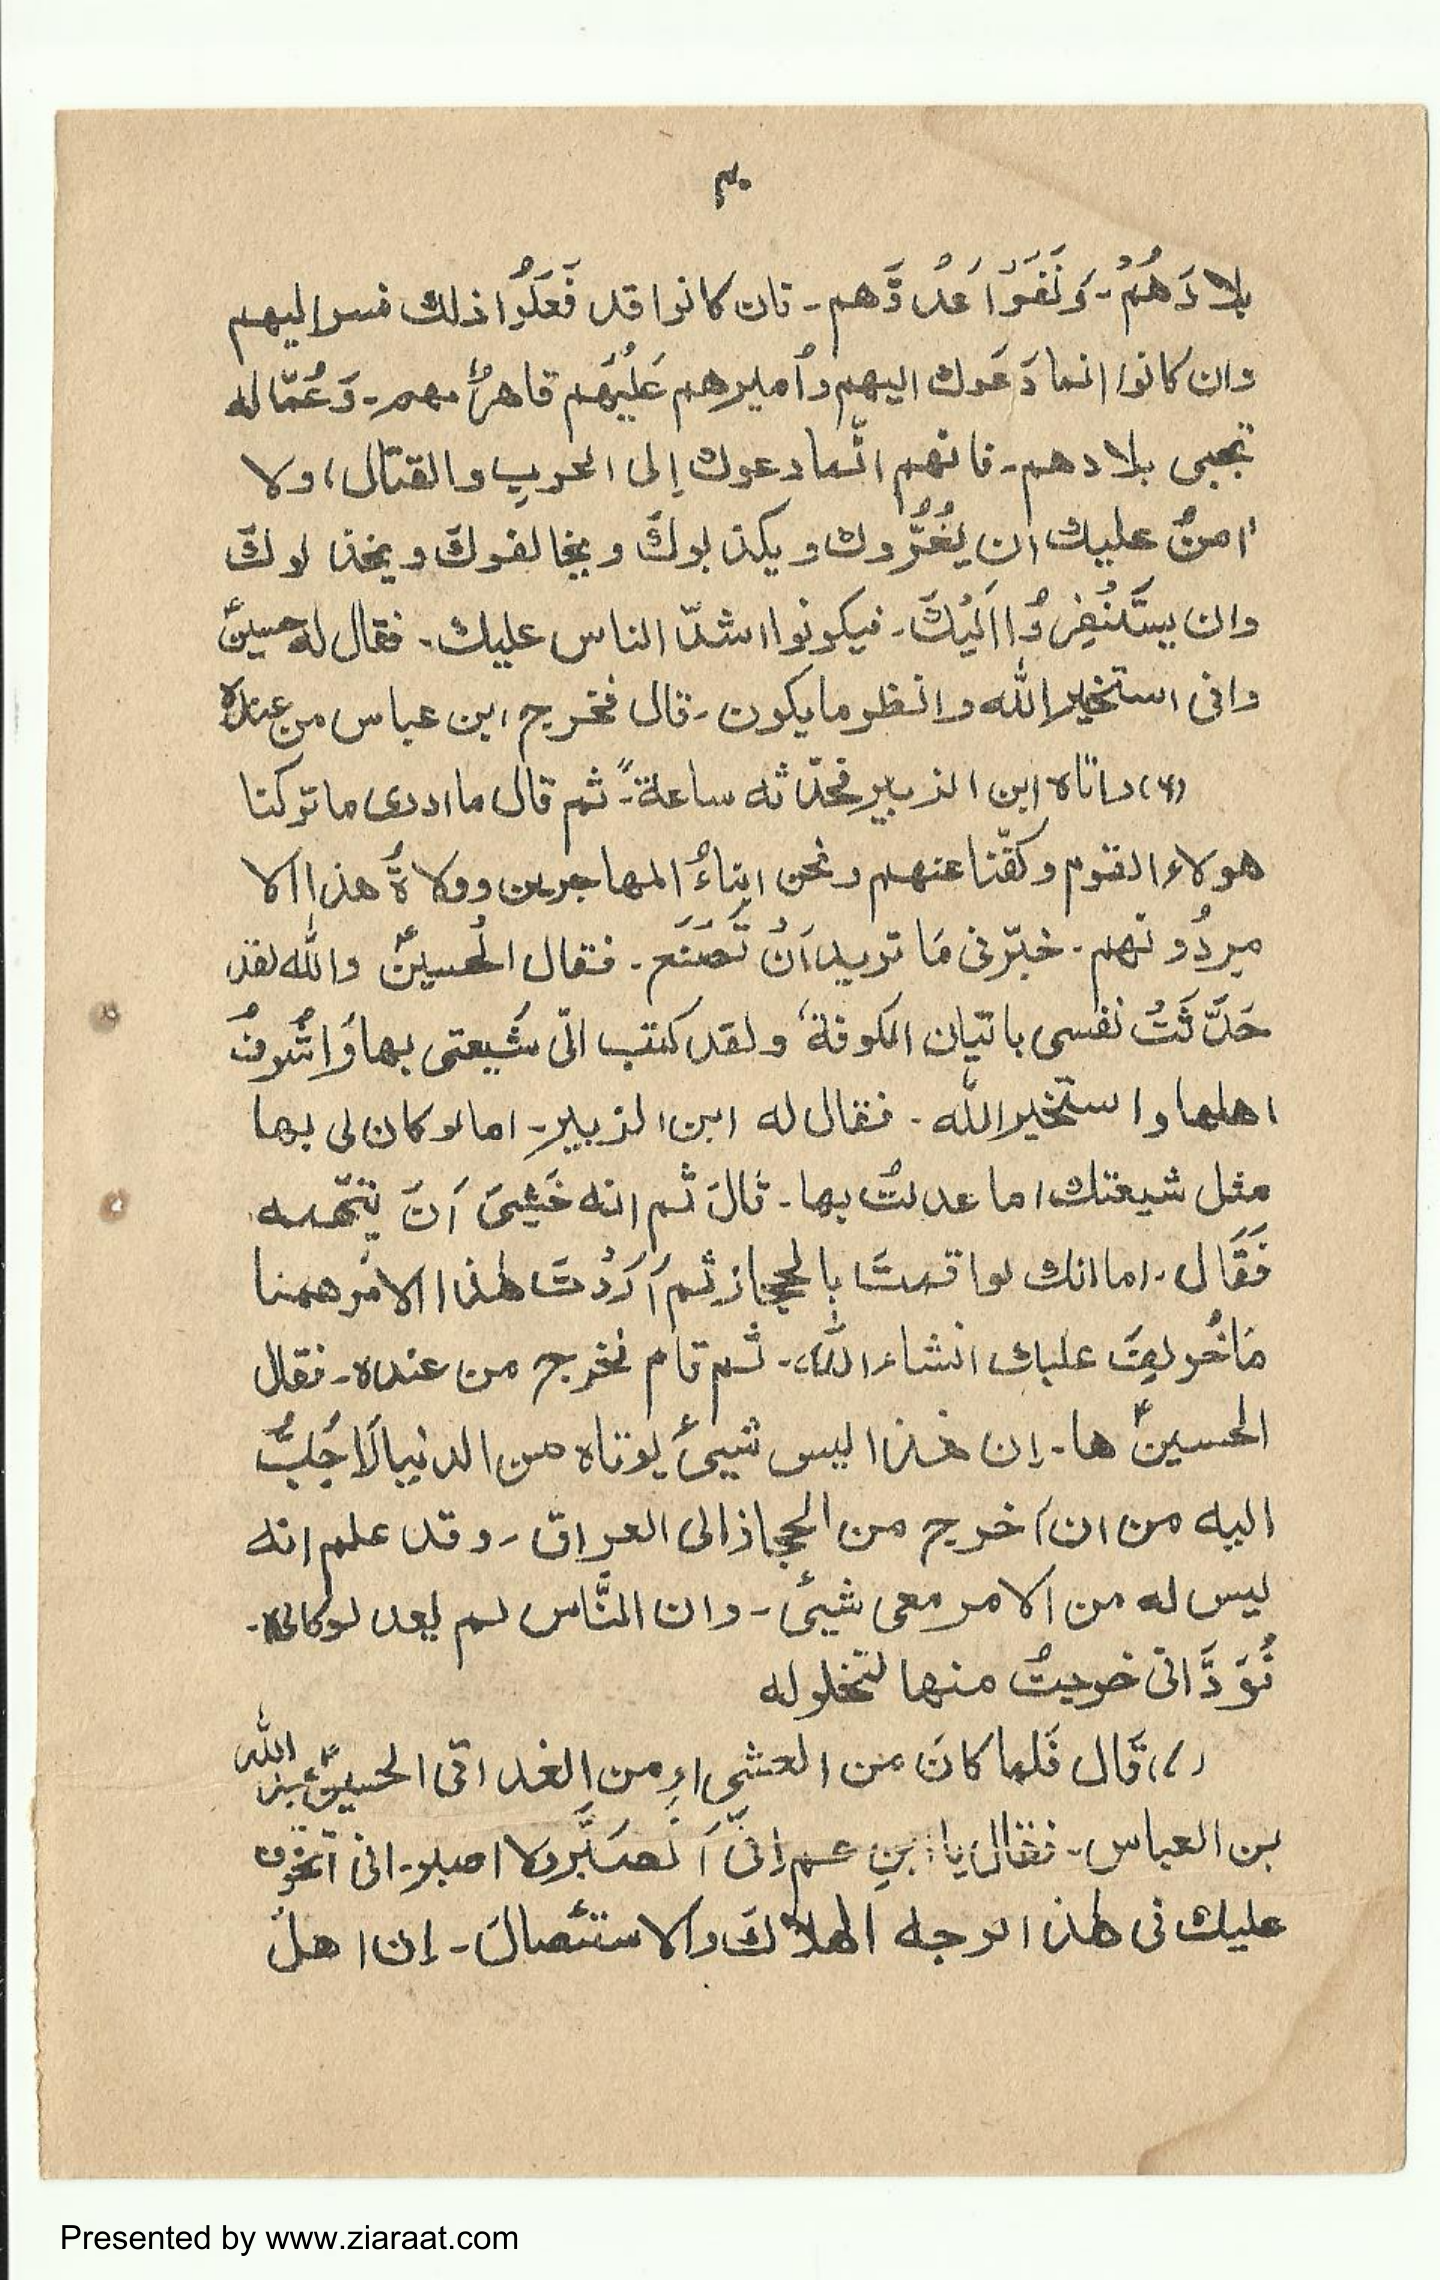 ۳۰
بلادَهُمْ۔ وَنَفَوْا عَدُوَّهم۔ فان كانوا قد فَعَلُوْا ذلك فسر اليهم
وان كانوا انما دَعَوك اليهم وأميرهم عَلَيْهَم قاهرٌ لهم۔ وَعُمّاله
تجبى بلادهم۔ فانهم انَّما دعوك إلى الحربِ والقتال، ولا
امنُ عليك ان يَغُرُّوك ويكذبوكَ ويخالفوكَ ويخذلوكَ
وان يستَنْفِرُوْا اَلَيْكَ۔ فيكونوا اشدّ الناس عليك۔ فقال له حسينؑ
وانى استخير الله وانظر مايكون۔ قال فخرج ابن عباس من عنده
(٦) واتاه ابن الزبير فحدّثه ساعةً۔ ثم قال ما ادرى ماتركنا
هولاء القوم وكفّنا عنهم ونحن ابناءُ المهاجرين وولاةُ هذا الا
مردُونهم۔ خبّرنى مَا تريد اَنْ تَصْنَع۔ فقال الحُسينؑ والله لقد
حَدَّثَتُ نفسى باتيان الكوفة، ولقد كتب الىّ شَيعتى بها وَاشْرُفُ
اهلها واستخير الله۔ فقال له ابن الزبير۔ اما لو كان لى بها
مثل شيعتك اما عدلتُ بها۔ قالَ ثم انه خَشِىَ اَنَ يتّهمه
فَقَال۔ اما انك لو اقمتَ بالحجاز ثم اَرَدْتَ هٰذا الامْر ههنا
مَاخُولِفَ عليك انشاء الله۔ ثم قام فخرج من عنده۔ فقال
الحسينؑ ها۔ اِن هٰذا ليس شيئٌ يوتاه من الدنيا لَاحَبَّ
اليه من ان اخرج من الحجاز الى العراق۔ وقد علم انه
ليس له من الامر معى شيئ۔ وان النَّاس لم يعدلوكابى۔
فُوَدَّ انى خرجتُ منها لتخلوله
(٧) قَال فَلما كانَ من العشى اوِ من الغد اتى الحسينؑ عبد الله
بن العباس۔ فقال يا ابنِ عم اِنّى اَتصبَّر ولا اصبر۔ انى اَتَخوّف
عليك فى هٰذا الوجه الهلاكَ والاستئصالَ۔ اِن اهلَ
Presented by www.ziaraat.com